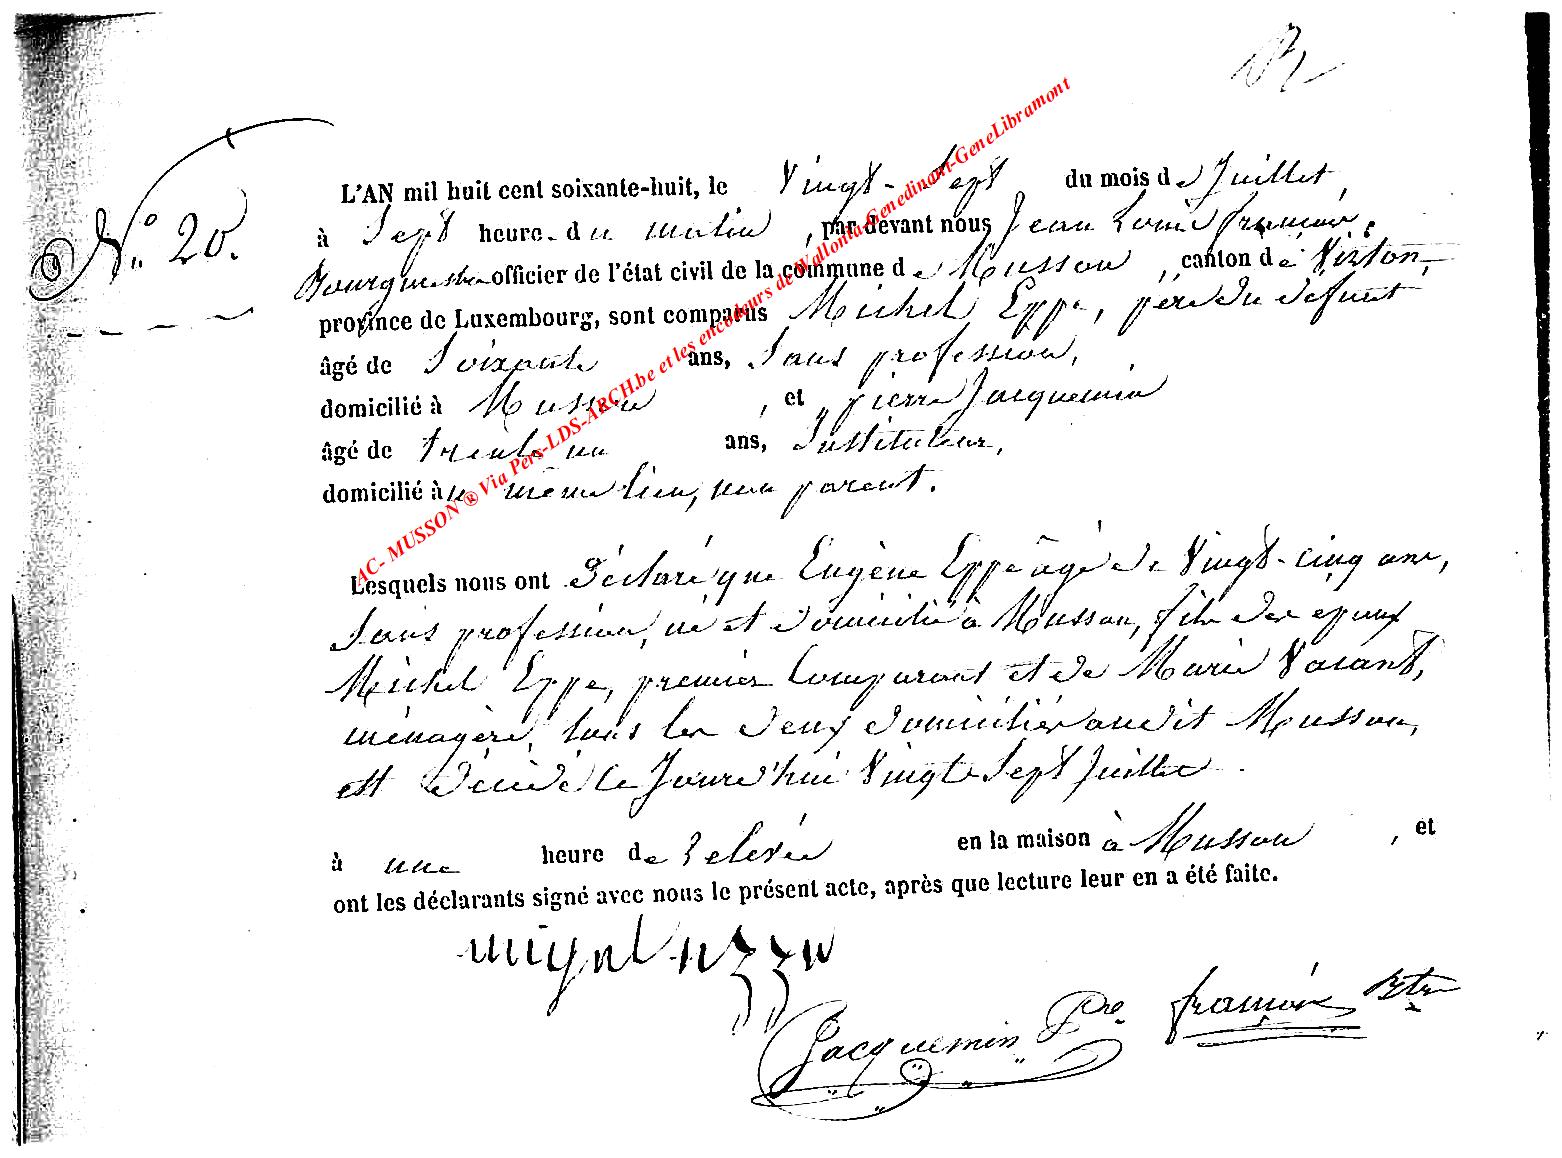 N° 20.
L'AN mil huit cent soixante-huit, le Vingt-Sept du mois de Juillet,
à Sept heure. du matin, par devant nous Jean Louis françois,
Bourgmestre officier de l'état civil de la commune de Musson, canton de Virton,
province de Luxembourg, sont comparus Michel Eppe, père du défunt
âgé de Soixante ans, Sans profession,
domicilié à Musson, et pierre Jacquemin
âgé de trente un ans, Instituteur,
domicilié à u même lieu, non parent.
Lesquels nous ont déclaré que Eugène Eppe âgé de Vingt-cinq ans,
Sans profession, né et domicilié à Musson, fils des epoux
Michel Eppe, premier Comparant et de Marie Vasant,
ménagère, tous les deux domiciliés audit Musson,
est décédé le Jourd'hui Vingt Sept Juillet
à une heure de relevée en la maison à Musson, et
ont les déclarants signé avec nous le présent acte, après que lecture leur en a été faite.
Jacquemin Pre françois Btre
AC- MUSSON ® Via Pers-LDS-ARCH.be et les encodeurs de Wallonia-Genedinant-GeneLibramont